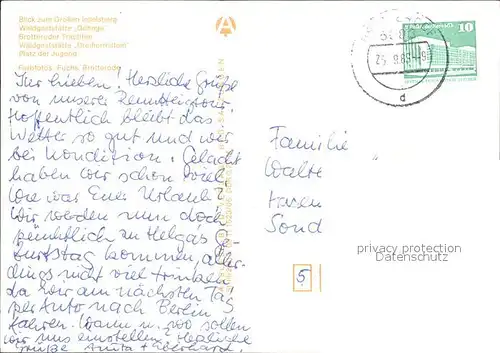 Blick zum Großen Inselsberg
Waldgaststätte „Gehege"
Brotteroder Trachten
Waldgaststätte „Dreiherrnstein"
Platz der Jugend
Farbfotos: Fuchs, Brotterode
Ihr Lieben! Herzliche Grüße
von unserer Rennsteigtour.
Hoffentlich bleibt das
Wetter so gut und wir
bei Kondition. Gelacht
haben wir schon viel
Wie war Euer Urlaub?
Wir werden nun doch
pünktlich zu Helgas
Geburtstag kommen, aller-
dings nicht viel trinken,
da wir am nächsten Tag
per Auto nach Berlin
fahren. Wann u. wo sollen
wir uns einstellen? Herzliche
Grüße Anita + Eberhard.
10
d
Familie
Walte
Sond
5
privacy protection
Datenschutz